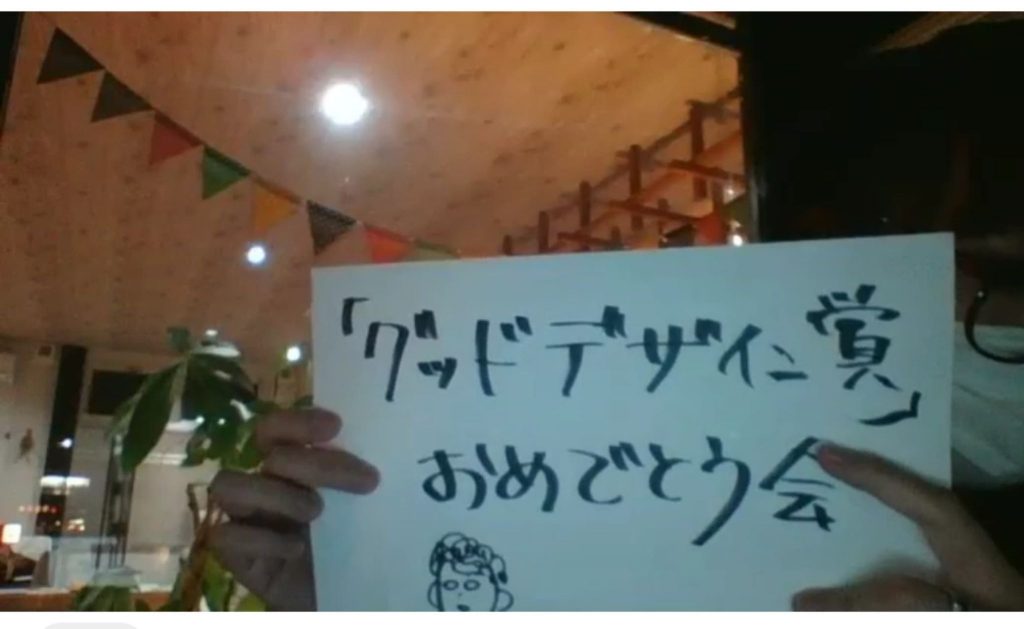 「グッドデザイン賞」
おめでとう会